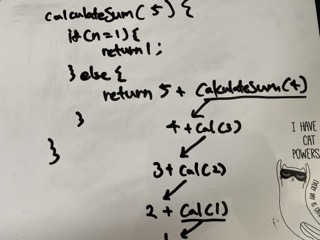 calculateSum(5) {
if(n=1){
return 1;
} else {
return 5 + CalculateSum(4)
}
}
4 + Cal(3)
3 + Cal(2)
2 + Cal(1)
1
I HAVE
CAT
POWERS